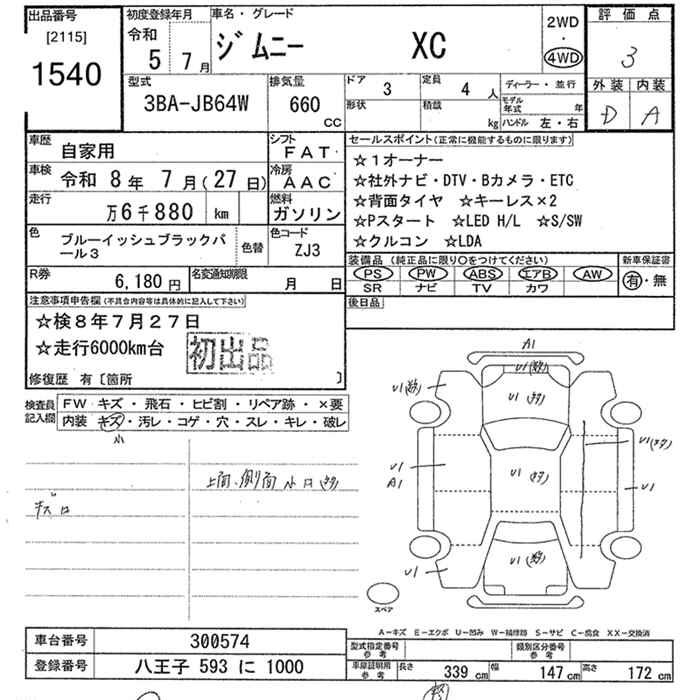 出品番号
[2115]
1540
初度登録年月
令和 5 7月
車名・グレード
ジムニー XC
2WD
・
4WD
評価点
3
外装 内装
D A
型式
3BA-JB64W
排気量
660 CC
ドア 3
形状
定員 4 人
積載 kg
ディーラー・並行
モデル年式 年
ハンドル 左・右
車歴 自家用
シフト FAT
車検 令和 8年 7月(27日)
冷房 AAC
走行 万6千880 km
燃料 ガソリン
色 ブルーイッシュブラックパール3
色替
色コード ZJ3
R券 6,180円
名変通知期限 月 日
セールスポイント(正常に機能するものに限ります)
☆1オーナー
☆社外ナビ・DTV・Bカメラ・ETC
☆背面タイヤ ☆キーレス×2
☆Pスタート ☆LED H/L ☆S/SW
☆クルコン ☆LDA
装備品(純正品に限り○をつけてください)
新車保証書
PS PW ABS エアB AW
SR ナビ TV カワ
有・無
後日品
注意事項申告欄(不具合内容等は具体的に記入して下さい)
☆検8年7月27日
☆走行6000km台
初出品
修復歴 有〔箇所 〕
検査員記入欄
FW キズ・飛石・ヒビ割・リペア跡・×要
内装 キズ・汚レ・コゲ・穴・スレ・キレ・破レ
小
A1
U1
U1
U1
U1
U1
A1
U1
U1
U1
U1
U1
スペア
A-キズ E-エクボ U-凹み W-補修跡 S-サビ C-腐食 XX-交換済
車台番号 300574
登録番号 八王子 593 に 1000
型式指定番号 参考
類別区分番号 参考
車庫証明用 参考
長さ 339 cm 幅 147 cm 高さ 172 cm